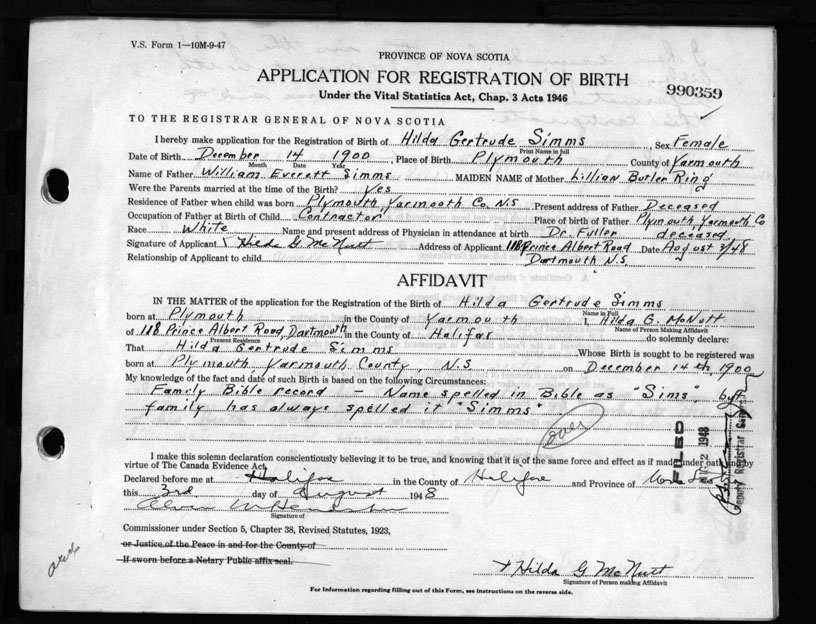 V.S. Form 1—10M-9-47
PROVINCE OF NOVA SCOTIA
APPLICATION FOR REGISTRATION OF BIRTH
990359
Under the Vital Statistics Act, Chap. 3 Acts 1946
TO THE REGISTRAR GENERAL OF NOVA SCOTIA
I hereby make application for the Registration of Birth of Hilda Gertrude Simms, Sex Female
Print Name in full
Date of Birth December 14 1900, Place of Birth Plymouth County of Yarmouth
Month Date Year
Name of Father William Everett Simms MAIDEN NAME of Mother Lillian Butler Ring
Were the Parents married at the time of the Birth? Yes
Residence of Father when child was born Plymouth Yarmouth Co. N.S Present address of Father Deceased
Occupation of Father at Birth of Child Contractor Place of birth of Father Plymouth, Yarmouth Co
Race White Name and present address of Physician in attendance at birth Dr. Fuller deceased
Signature of Applicant Hilda G. McNutt Address of Applicant 118 Prince Albert Road Date August 3/48
Relationship of Applicant to child Dartmouth N.S.
AFFIDAVIT
IN THE MATTER of the application for the Registration of the Birth of Hilda Gertrude Simms
Name in Full
born at Plymouth in the County of Yarmouth I, Hilda G. McNutt
Name of Person Making Affidavit
of 118 Prince Albert Road, Dartmouth in the County of Halifax do solemnly declare:
Present Residence
That Hilda Gertrude Simms Whose Birth is sought to be registered was
born at Plymouth, Yarmouth County, N.S. on December 14th, 1900
My knowledge of the fact and date of such Birth is based on the following Circumstances:
Family Bible record - Name spelled in Bible as "Sims", but
family has always spelled it "Simms".
over
FILED
2 1948
Deputy Registrar
I make this solemn declaration conscientiously believing it to be true, and knowing that it is of the same force and effect as if made under oath by
virtue of The Canada Evidence Act,
Declared before me at Halifax in the County of Halifax and Province of Nova Scotia
this 3rd day of August 1948
Signature of
Commissioner under Section 5, Chapter 38, Revised Statutes, 1923,
or Justice of the Peace in and for the County of
If sworn before a Notary Public affix seal.
Hilda G McNutt
Signature of Person making Affidavit
For Information regarding filling out of this Form, see instructions on the reverse side.